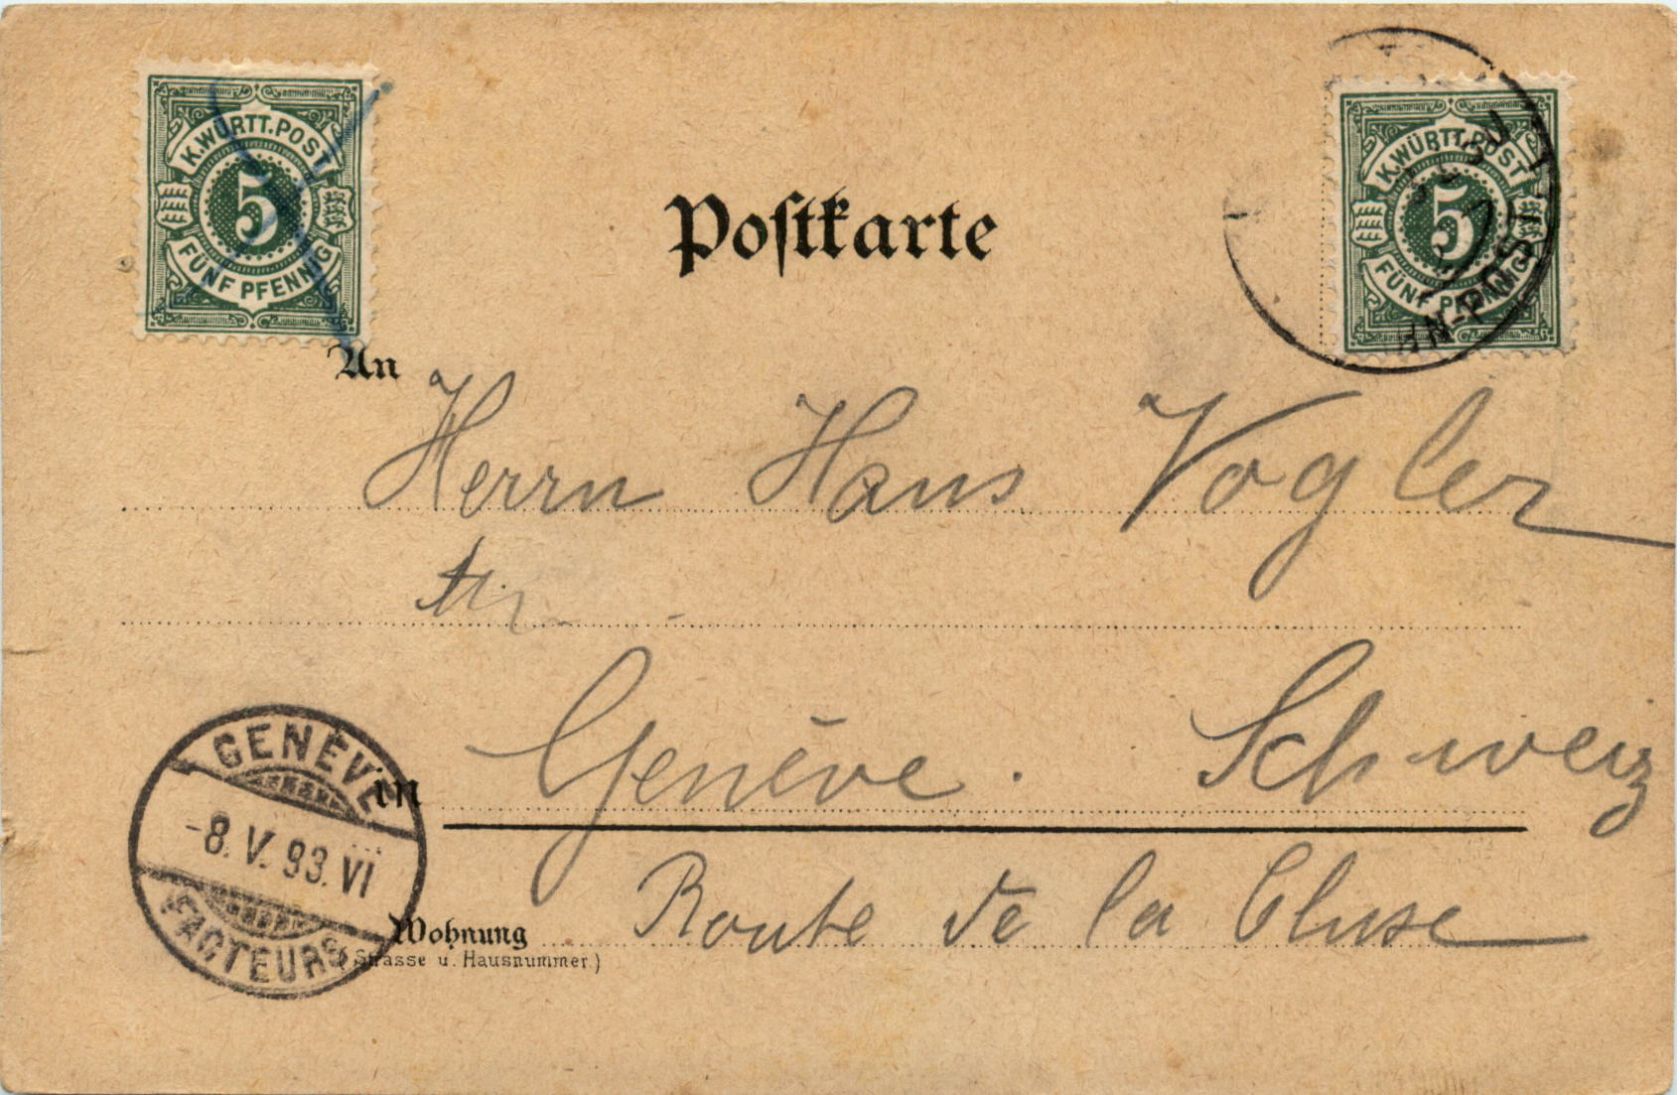 K. WÜRTT. POST
5
FÜNF PFENNIG
K. WÜRTT. POST
5
FÜNF PFENNIG
HN-POST
Postkarte
An
Herrn Hans Vogler
in Genève. Schweiz
Wohnung Route de la Cluse
(Strasse u. Hausnummer.)
GENÈVE
-8. V. 93. VI
FACTEURS